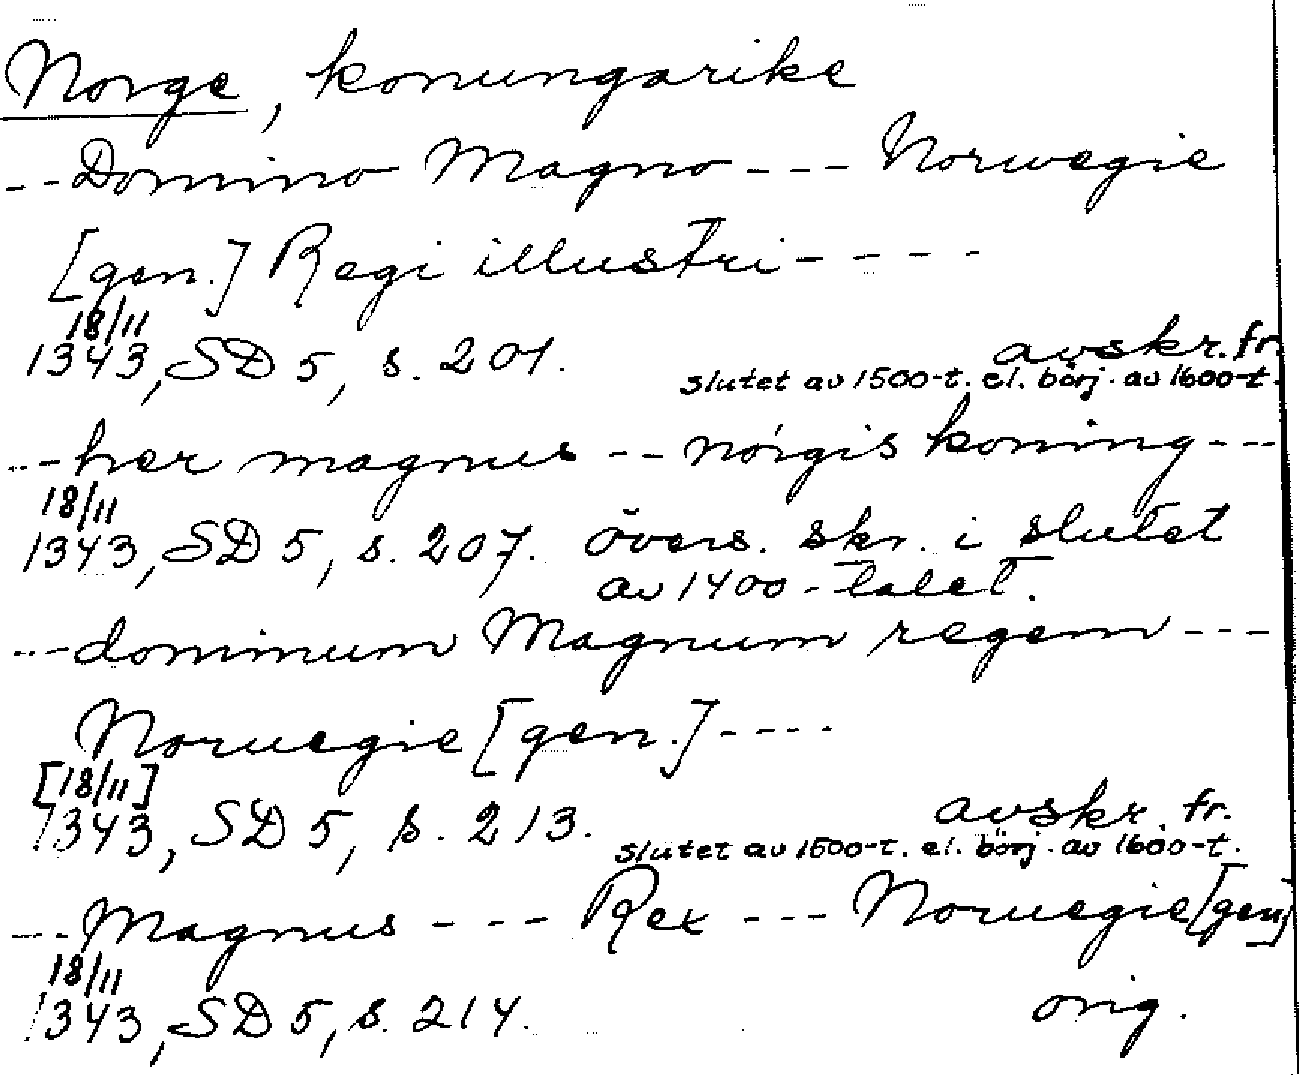 Norge, konungarike
--- Domino Magno --- Norwegie
[gen.] Regi illustri ----
18/11
1343, SD 5, s. 201. avskr. fr.
slutet av 1500-t. el. börj. av 1600-t.
--- her magnus -- nørgis koning ---
18/11
1343, SD 5, s. 207. övers. skr. i slutet
av 1400-talet.
--- dominum Magnum regem ---
Noruegie [gen.] ----
[18/11]
1343, SD 5, s. 213. avskr. fr.
slutet av 1500-t. el. börj. av 1600-t.
--- Magnus --- Rex --- Noruegie [gen]
18/11
1343, SD 5, s. 214. orig.